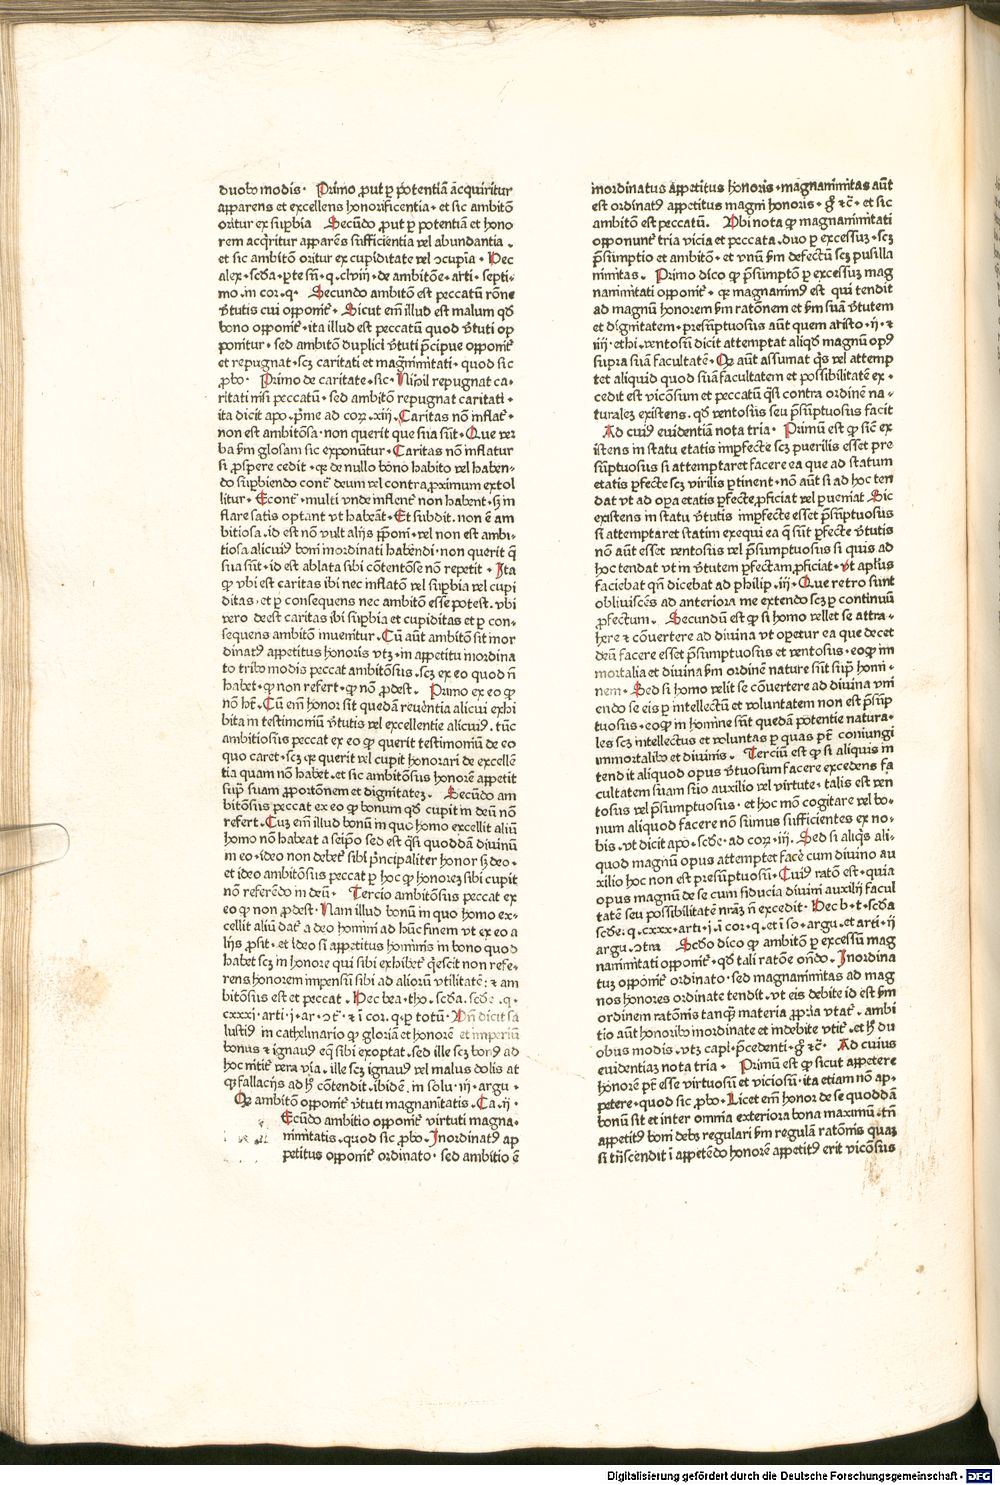 duobo modis · Primo ,put ꝑ potentiā acquiritur
apparens et excellens honorificentia · et sic ambitō
oritur ex supbia Secūdo ,put ꝑ potentiā et hono
rem acq̄ritur apparēs sufficientia vel abundantia .
et sic ambitō oritur ex cupiditate vel ɔcupīa · Hec
alex · scd̄a · ꝑte sn̄ · q . clviij · de ambitōne · arti · septi-
mo . in cor . q · Secundo ambitō est peccatū rōne
v̄tutis cui opponit᷑ · Sicut em̄ illud est malum qd̄
bono opponit᷑ · ita illud est peccatū quod v̄tuti op
ponitur · sed ambitō duplici v̄tuti p̄cipue opponit᷑
et repugnat · scꝫ caritati et magn̄imitati · quod sic
,pbo · Primo de caritate · sic · Nihil repugnat ca-
ritati nisi peccatū · sed ambitō repugnat caritati ·
ita dicit apo . p̄me ad coꝝ . xiij . Caritas nō inflat᷑ ·
non est ambitōsa · non querit que sua sūt · Que ver
ba ẜm glosam sic exponūtur · Caritas nō inflatur
si ,pspere cedit · qꝛ de nullo bono habito vel haben-
do supbiendo cont᷑ deum vel contra ,pximum extol
litur · Econt᷑ · multi vnde inflent᷑ non habent · sꝫ in
flare satis optant vt habeāt · Et subdit . non ē am
bitiosa . id est nō vult alijs p̄poni · vel non est ambi-
tiosa alicui⁹ boni inordinati habēdi · non querit q̄
sua sūt · id est ablata sibi cōtentōse nō repetit · Ita
ꝙ vbi est caritas ibi nec inflatō vel supbia vel cupi
ditas · et ꝑ consequens nec ambitō esse potest . vbi
vero deest caritas ibi supbia et cupiditas et ꝑ con-
sequens ambitō inuenitur . Cū aūt ambitō sit inor
dinat⁹ appetitus honoris vtꝫ · in appetitu inordina
to tribo modis peccat ambitōsus . scꝫ ex eo quod n̄
habet · ꝙ non refert · ꝙ nō ,pdest . Primo ex eo ꝙ
nō hꝫ . Cū em̄ honor sit quedā reuēntia alicui exhi
bita in testimoniū v̄tutis vel excellentie alicui⁹ . tūc
ambitiosus peccat ex eo ꝙ querit testimoniū de eo
quo caret · scꝫ qꝛ querit vel cupit honorari de excellē
tia quam nō habet · et sic ambitōsus honorē appetit
supͣ suam ,pportōnem et dignitateꝫ . Secūdo am
bitōsus peccat ex eo ꝙ bonum qd̄ cupit in deū nō
refert . Cuꝫ em̄ illud bonū in quo homo excellit aliū
homo nō habeat a seip̄o sed est q̄si quoddā diuinū
in eo · ideo non debet᷑ sibi p̄ncipaliter honor sꝫ deo ·
et ideo ambitōsus peccat ꝑ hoc ꝙ honoreꝫ sibi cupit
nō referēdo in deū . Tercio ambitōsus peccat ex
eo ꝙ non ,pdest · Nam illud bonū in quo homo ex-
cellit aliū dat᷑ a deo homini ad hūc finem vt ex eo a
lijs ,psit · et ideo si appetitus hominis in bono quod
habet scꝫ in honore qui sibi exhibet᷑ q̄escit non refe-
rens honorem impensū sibi ad alioꝝ vtilitatē : ⁊ am
bitōsus est et peccat . Hec bea · tho . scd̄a . scd̄e · q ·
cxxxi · arti · j · ar · ɔt᷑ · ⁊ ī cor . q · ꝑ totū · Vn̄ dicit sa
lusti⁹ in cathelinario ꝙ gloriā et honorē et imperiū
bonus ⁊ ignau⁹ eq̄ sibi exoptat . sed ille scꝫ bon⁹ ad
hoc nitit᷑ vera via . ille scꝫ ignau⁹ vel malus dolis at
qꝫ fallacijs ad hͦ cōtendit · ibidē . in solu · ij · argu ·
Qꝙ ambitō opponit᷑ v̄tuti magnanītatis . Ca . ij ·
Ecūdo ambitio opponit᷑ virtuti magna-
nimitatis . quod sic ,pbo · Inordinat⁹ ap
petitus opponit᷑ ordinato · sed ambitio ē
inordinatus appetitus honoris · magnanimitas aūt
est ordinat⁹ appetitus magni honoris · gͦ ⁊c̄ · et sic
ambitō est peccatū . Vbi nota ꝙ magnanimitati
opponunt᷑ tria vicia et peccata . duo ꝑ excessuꝫ · scꝫ
p̄sumptio et ambitō · et vnū ẜm defectū scꝫ pusilla
nimitas . Primo dico ꝙ p̄sumptō ꝑ excessuꝫ mag
nanimitati opponit᷑ · qꝛ magnanim⁹ est qui tendit
ad magnū honorem ẜm ratōnem et ẜm suā v̄tutem
et dignitatem · presūptuosus aūt quem aristo · ij · ⁊
iiij · ethi . ventosū dicit attemptat aliqd̄ magnū op⁹
supra suā facultatē · Qꝛ aūt assumat q̄s vel attemp
tet aliquid quod suā facultatem et possibilitatē ex-
cedit est viciōsum et peccatū q̄si contra ordinē na-
turaleꝫ existens . qd̄ ventosus seu p̄sūptuosus facit
Ad cui⁹ euidentiā nota tria · Primū est ꝙ siē ex
istens in statu etatis imꝑfecte scꝫ puerilis esset pre
sūptuosus si attemptaret facere ea que ad statum
etatis ꝑfecte scꝫ virilis ꝑtinent · nō aūt si ad hoc ten
dat vt ad oꝑa etatis ꝑfecte ,pficiat vel ꝑueniat Sic
existens in statu v̄tutis imꝑfecte esset p̄sūptuosus
si attemptaret statim exequi ea q̄ sūt ꝑfecte v̄tutis
nō aūt esset ventosus vel p̄sumptuosus si quis ad
hoc tendat vt in v̄tutem ꝑfectam ,pficiat · vt apl̄us
faciebat qn̄ dicebat ad philip . iij · Que retro sunt
obliuiscēs ad anteriora me extendo scꝫ ꝑ continuū
,pfectum . Secundū est ꝙ si homo vellet se attra-
here ⁊ cōuertere ad diuina vt oꝑetur ea que decet
deū facere esset p̄sumptuosus et ventosus · eoꝙ im
mortalia et diuina ẜm ordinē nature sūt supͣ homi-
nem · Sed si homo velit se cōuertere ad diuina vni
endo se eis ꝑ intellectū et voluntatem non est p̄sūp
tuosus · eoꝙ in homine sūt quedā potentie natura-
les scꝫ intellectus et voluntas ꝑ quas pt̄ coniungi
immortalibo et diuinis . Terciū est ꝙ si aliquis in
tendit aliquod opus v̄tuosum facere excedens fa
cultatem suam suo auxilio vel virtute · talis est ven
tosus vel p̄sumptuosus · et hoc mō cogitare vel bo-
num aliquod facere nō sumus sufficientes ex no-
bis . vt dicit apo . scd̄e · ad coꝝ . iij . Sed si aliq̄s ali-
quod magnū opus attemptet facē cum diuino au
xilio hoc non est presūptuosū · Cui⁹ ratō est · quia
opus magnū de se cum fiducia diuini auxilij facul
tatē seu possibilitatē nr̄aꝫ n̄ excedit · Hec b · t · scd̄a
scd̄e · q . cxxx · arti · j . ī cor · q . et ī so · argu . et arti · ij
argu . ɔtra Scd̄o dico ꝙ ambitō ꝑ excessū mag
nanimitati opponit᷑ . qd̄ tali ratōe on̄do . Inordina
tuꝫ opponit᷑ ordinato · sed magnanimitas ad mag
nos honores ordinate tendit . vt eis debite id est ẜm
ordinem ratōnis tanq̄ꝫ materia ,ppria vtat᷑ . ambi
tio aūt honoribo inordinate et indebite vtit᷑ . et hͦ du
obus modis . vtꝫ capl̄ · p̄cedenti · gͦ ⁊c̄ · Ad cuius
euidentiaꝫ nota tria · Primū est ꝙ sicut appetere
honorē pt̄ esse virtuosū et viciosū · ita etiam nō ap-
petere · quod sic ,pbo · Licet em̄ honor de se quoddā
bonū sit et inter omnia exteriora bona maximū · tn̄
appetit⁹ boni debꝫ regulari ẜm regulā ratōnis quaꝫ
si tn̄scendit ī appetēdo honorē appetit⁹ erit viciōsus
Digitalisierung gefördert durch die Deutsche Forschungsgemeinschaft - DFG